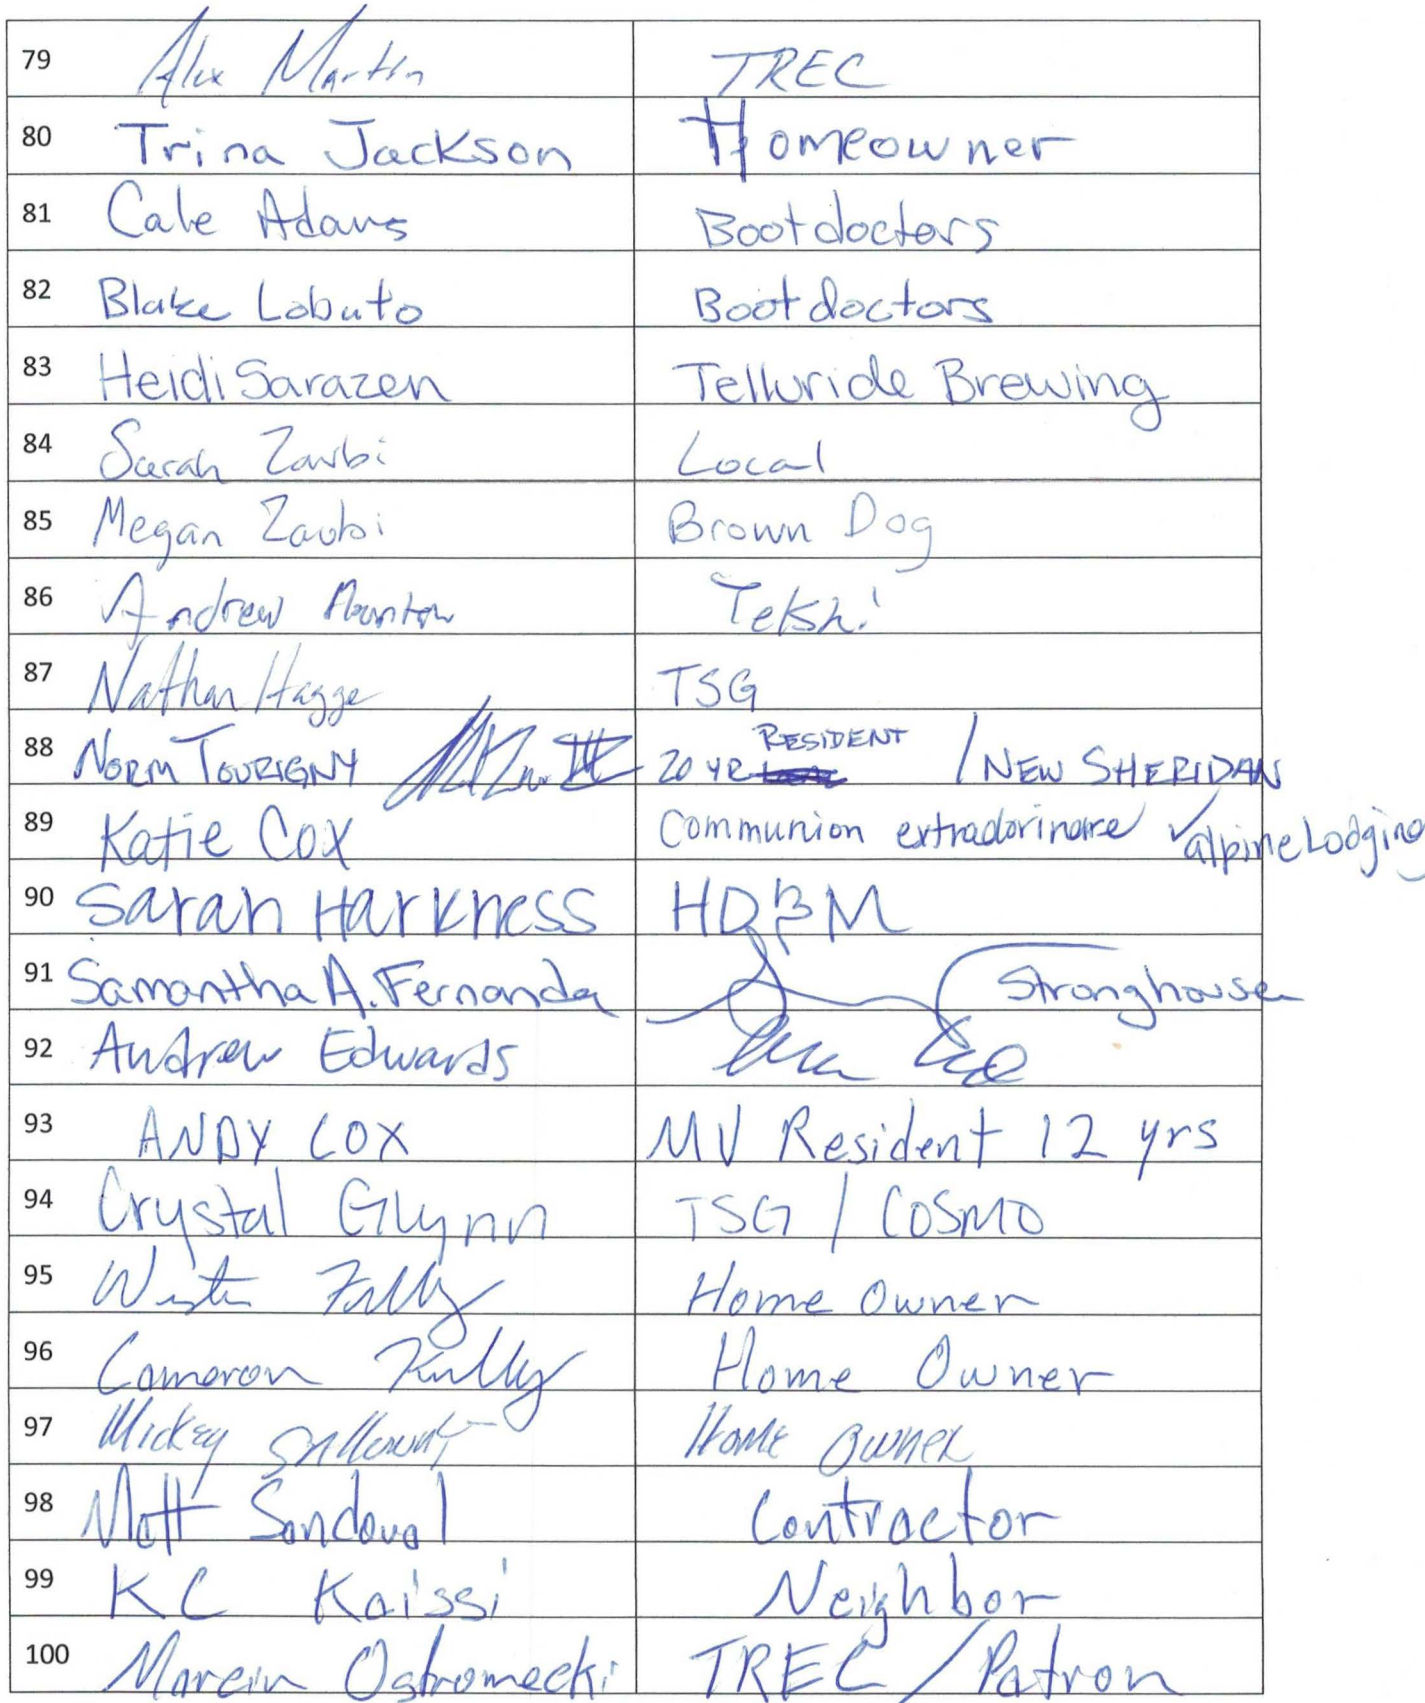 79 Alex Martin TREC
80 Trina Jackson Homeowner
81 Cale Adams Bootdoctors
82 Blake Lobuto Bootdoctors
83 Heidi Sarazen Telluride Brewing
84 Sarah Zaubi Local
85 Megan Zaubi Brown Dog
86 Andrew Telski
87 Nathan Hagge TSG
88 NORM TOURIGNY 20 YR RESIDENT / NEW SHERIDAN
89 Katie Cox Communion extradorinare alpine Lodging
90 Sarah Harkness HDBM
91 Samantha A. Fernanda Stronghouse
92 Andrew Edwards
93 ANDY COX MV Resident 12 yrs
94 Crystal Glynn TSG / COSMO
95 Home Owner
96 Cameron Home Owner
97 Mickey Home Owner
98 Matt Sandoval Contractor
99 KC Kaissi Neighbor
100 Marcin Ostromecki TREC / Patron